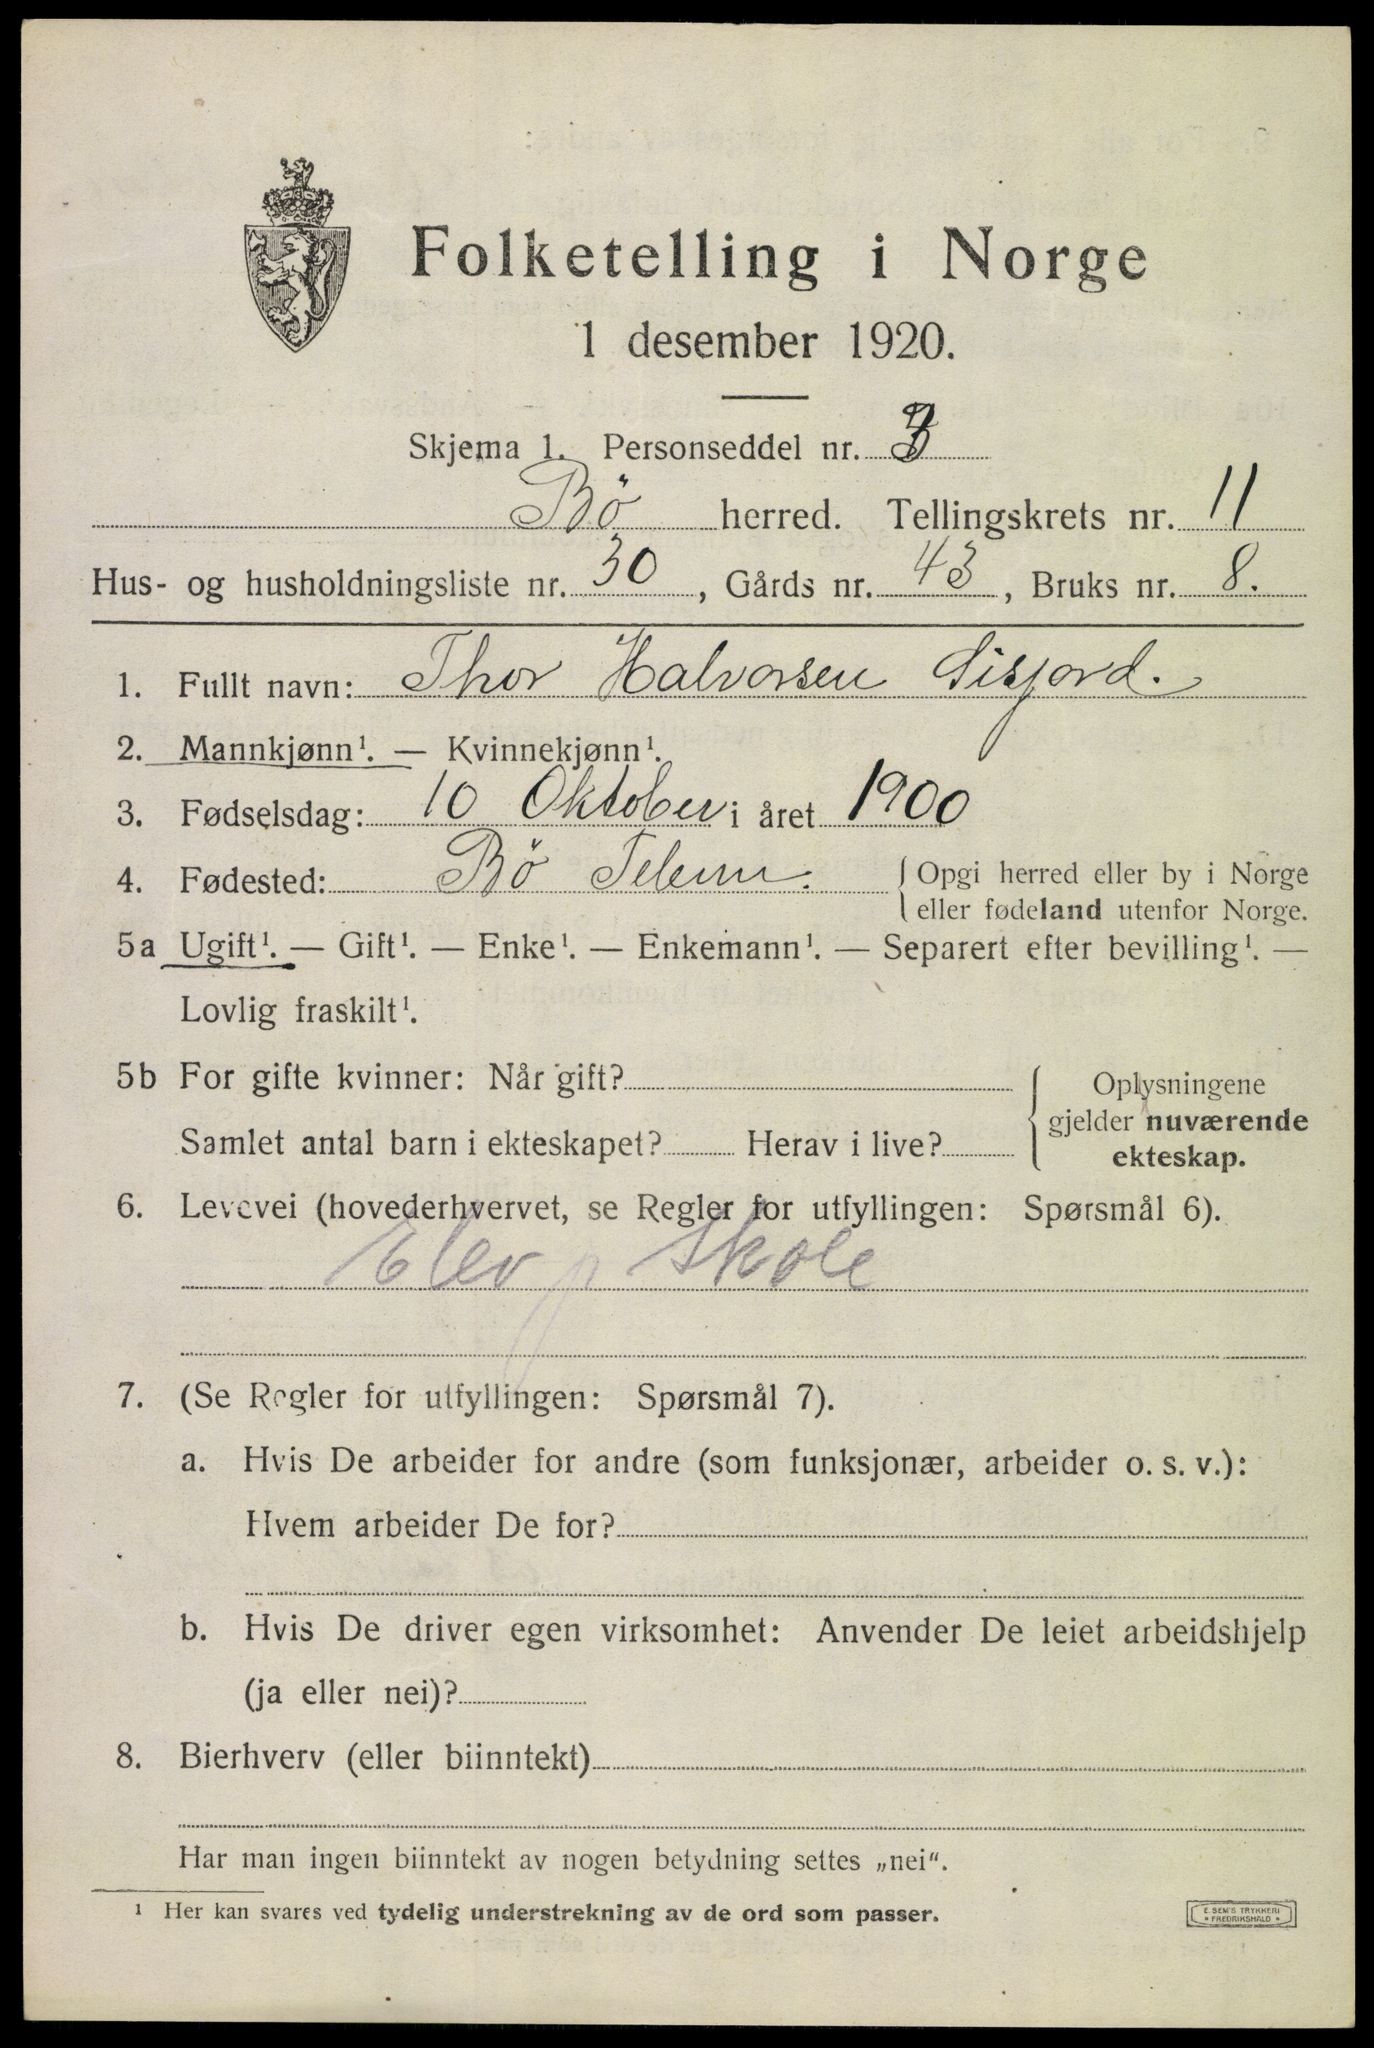 Folketelling i Norge
1 desember 1920.
Skjema 1. Personseddel nr. 3
Bö herred. Tellingskrets nr. 11
Hus- og husholdningsliste nr. 30, Gårds nr. 43, Bruks nr. 8.
1. Fullt navn: Thor Halvorsen Sisjord.
2. Mannkjønn¹. — Kvinnekjønn¹.
3. Fødselsdag: 10 Oktober i året 1900
4. Fødested: Bö Telem. { Opgi herred eller by i Norge
eller fødeland utenfor Norge.
5a Ugift¹. — Gift¹. — Enke¹. — Enkemann¹. — Separert efter bevilling¹. —
Lovlig fraskilt¹.
5b For gifte kvinner: Når gift?
Samlet antal barn i ekteskapet? Herav i live?
{ Oplysningene
gjelder nuværende
ekteskap.
6. Levevei (hovederhvervet, se Regler for utfyllingen: Spørsmål 6).
Elev p skole
7. (Se Regler for utfyllingen: Spørsmål 7).
a. Hvis De arbeider for andre (som funksjonær, arbeider o. s. v.):
Hvem arbeider De for?
b. Hvis De driver egen virksomhet: Anvender De leiet arbeidshjelp
(ja eller nei)?
8. Bierhverv (eller biinntekt)
Har man ingen biinntekt av nogen betydning settes „nei“.
¹ Her kan svares ved tydelig understrekning av de ord som passer.
E. SEM'S TRYKKERI
* FREDRIKSHALD *